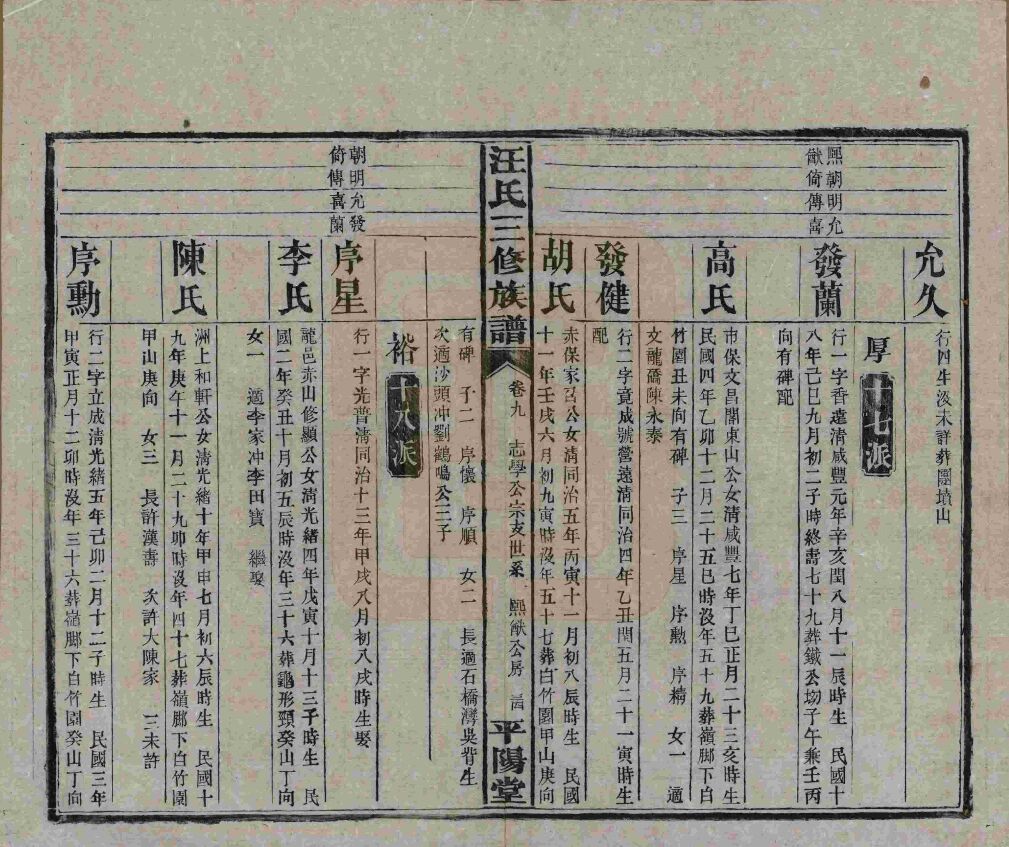 允久
行四生沒未詳葬團墳山
厚
十七派
熙朝明允
猷倚傳喜
發蘭
行一字香遠清咸豐元年辛亥閏八月十一辰時生 民國十
八年己巳九月初二子時終壽七十九葬鐵公坳子午兼壬丙
向有碑配
高氏
市保文昌閣東山公女清咸豐七年丁巳正月二十三亥時生
民國四年乙卯十二月二十五巳時沒年五十九葬嶺腳下白
竹園丑未向有碑 子三 序星 序勲 序精 女一 適
文龍礄陳永泰
發健
行二字竟成號營遠清同治四年乙丑閏五月二十一寅時生
配
胡氏
赤保家公女清同治五年丙寅十一月初八辰時生 民國
十一年壬戌六月初九寅時沒年五十七葬白竹園甲山庚向
汪氏三修族譜
卷九 志學公宗支世系 熙猷公房
平陽堂
有碑 子二 序懷 序順 女二 長適石橋灣吳背生
次適沙頭冲劉鶴鳴公三子
裕
十八派
朝明允發
倚傳喜蘭
序星
行一字光普清同治十三年甲戌八月初八戌時生娶
李氏
龍邑赤山修顯公女清光緒四年戊寅十月十三子時生 民
國二年癸丑十月初五辰時沒年三十六葬龜形頸癸山丁向
女一 適李家冲李田寶 繼娶
陳氏
洲上和軒公女清光緒十年甲申七月初六辰時生 民國十
九年庚午十一月二十九卯時沒年四十七葬嶺腳下白竹園
甲山庚向 女三 長許漢壽 次許大陳家 三未許
序勳
行二字立成清光緒五年己卯二月十二子時生 民國三年
甲寅正月十二卯時沒年三十六葬嶺腳下白竹園癸山丁向